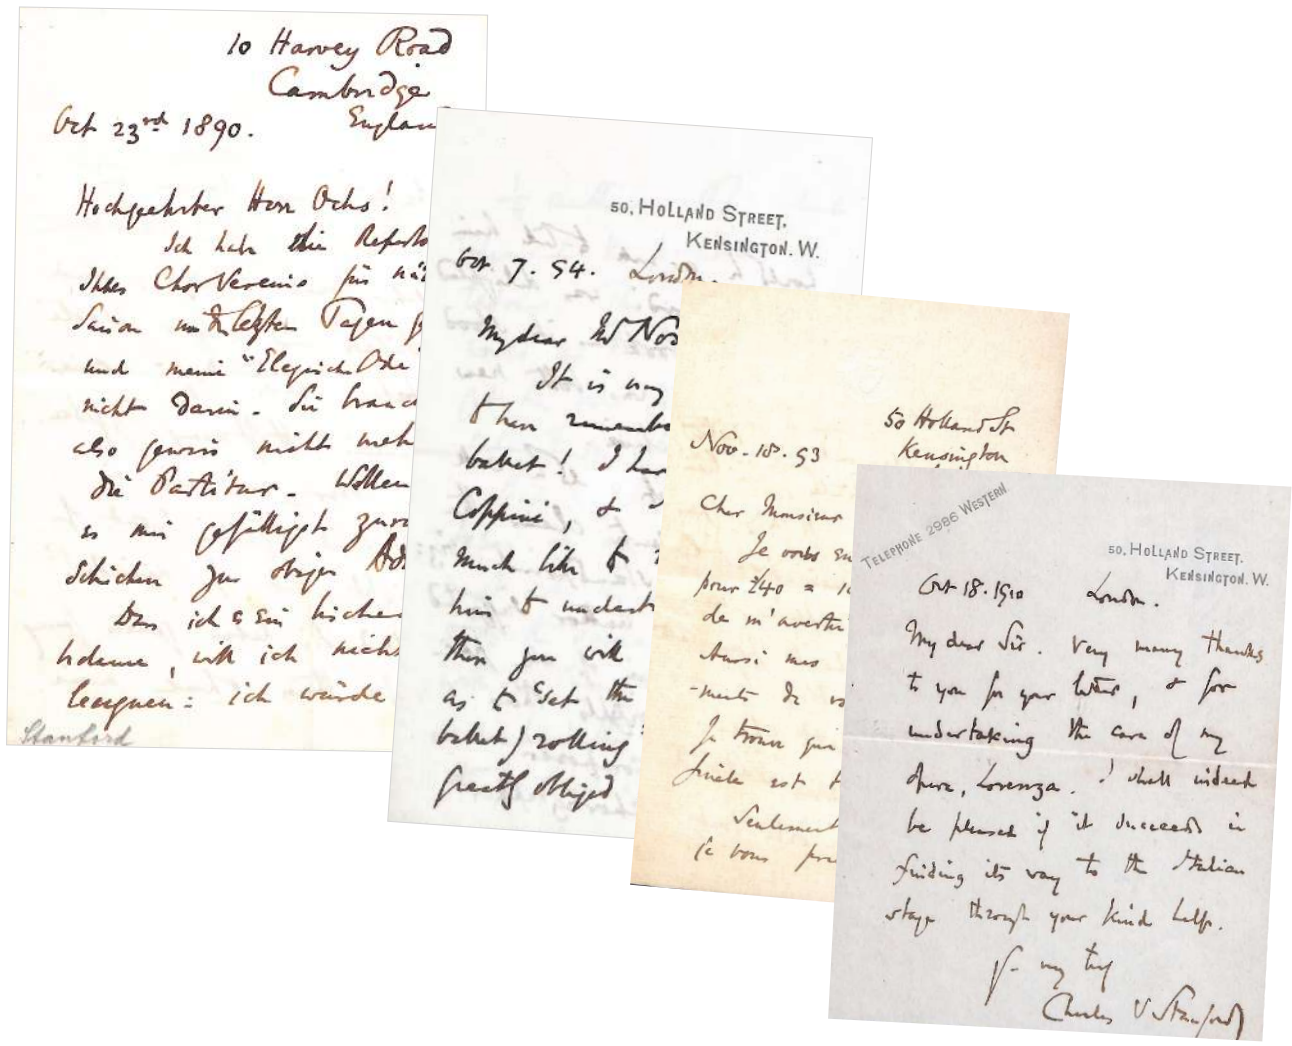 10 Harvey Road
Cambridge
England
Oct 23rd 1890.
Hochgeehrter Herr Ochs!
Ich habe die
Ihres ChorVereins für
Saison in letzten Tagen
und meine "Elegische Ode"
nicht darin. Sie
also gewiss nicht meh
die Partitur. Wollen
es mir gefälligst zurü
schicken zur obigen Ad
Dass ich es ein bischen
bedaure, will ich nicht
leugnen: ich würde
Stanford
50, HOLLAND STREET,
KENSINGTON. W.
Oct 7. 94. London.
My dear
It is very
to have
ballet! I hav
Coppini, &
much like to
him to undert
then you will
as to "set the
ballet) rolling"
greatly obliged
50 Holland St
Kensington
Nov. 18. 93
Cher Monsieur
Je vous
pour £40 =
de m'avertir
Aussi mes
-ments de
Je trouve que
est
Seulement
je vous pri
TELEPHONE 2986 WESTERN.
50, HOLLAND STREET,
KENSINGTON. W.
Oct 18. 1910 London.
My dear Sir. Very many thanks
to you for your letter, & for
undertaking the care of my
opera, Lorenza. I shall indeed
be pleased if it succeeds in
finding its way to the Italian
stage through your kind help.
Yr very truly
Charles V Stanford